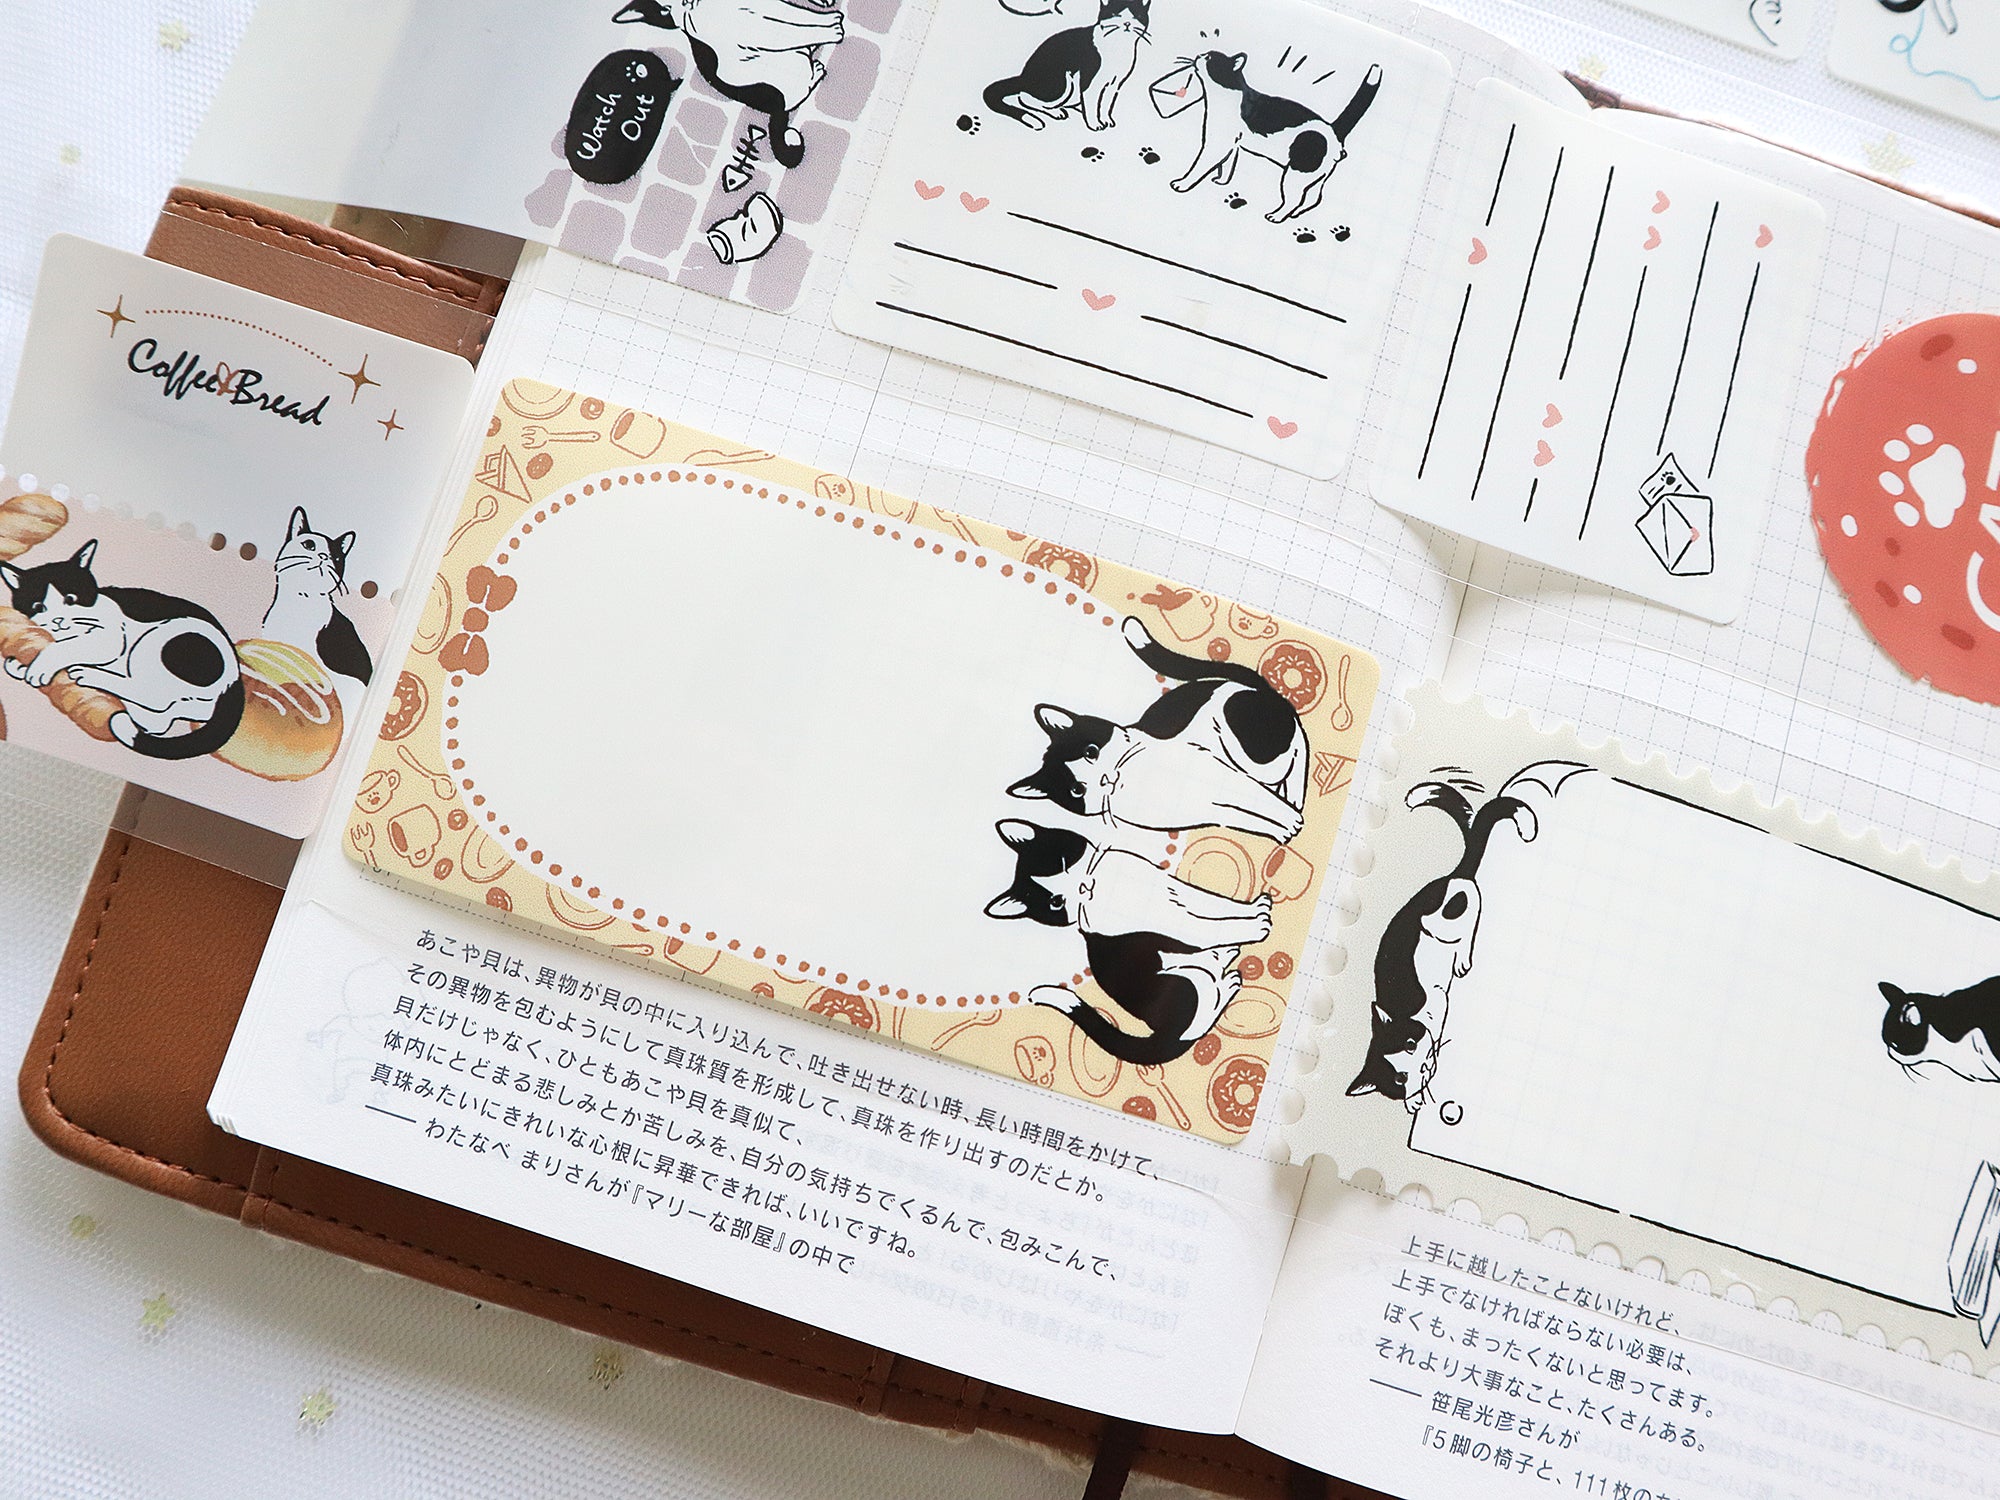 Watch
Out
Coffee Bread
CAT
あこや貝は、異物が貝の中に入り込んで、吐き出せない時、長い時間をかけて、
その異物を包むようにして真珠質を形成して、真珠を作り出すのだとか。
貝だけじゃなく、ひともあこや貝を真似て、
体内にとどまる悲しみとか苦しみを、自分の気持ちでくるんで、包みこんで、
真珠みたいにきれいな心根に昇華できれば、いいですね。
── わたなべ まりさんが『マリーな部屋』の中で
上手に越したことないけれど、
上手でなければならない必要は、
ぼくも、まったくないと思ってます。
それより大事なこと、たくさんある。
── 笹尾光彦さんが
『5脚の椅子と、111枚の